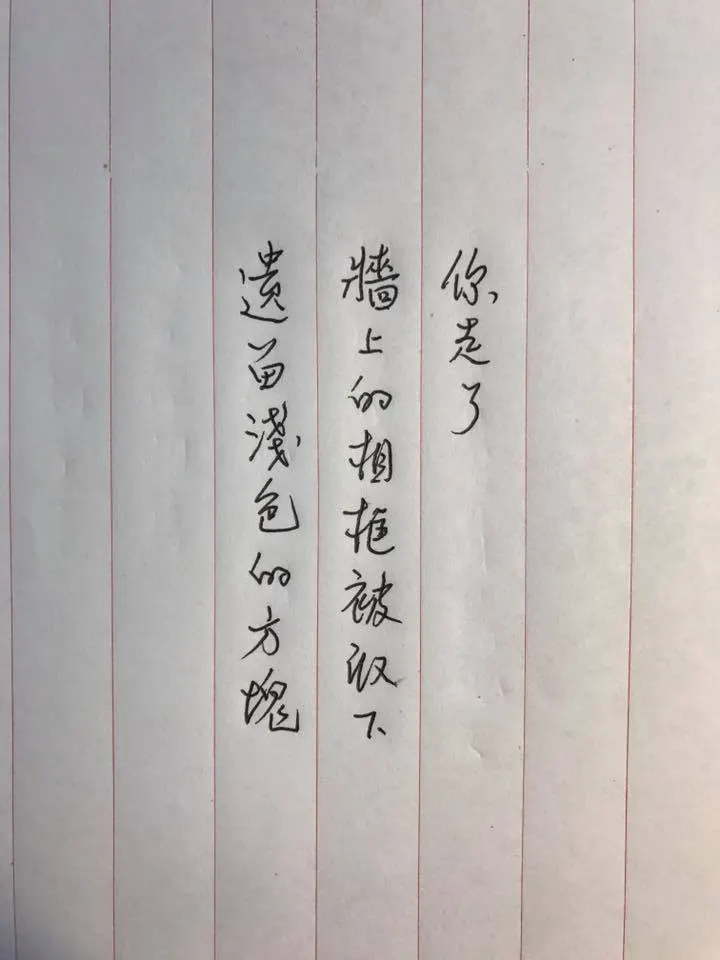 你走了
牆上的相框被取下
遺留淺色的方塊